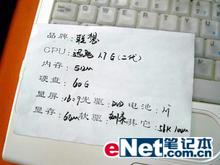 品牌: 联想
CPU: 迅驰 1.7G (二代)
内存: 512m
硬盘: 60G
显屏: 光驱: DVD 电池:
显存: 64m 软驱: 其它:
eNet笔记本
www.enet.com.cn